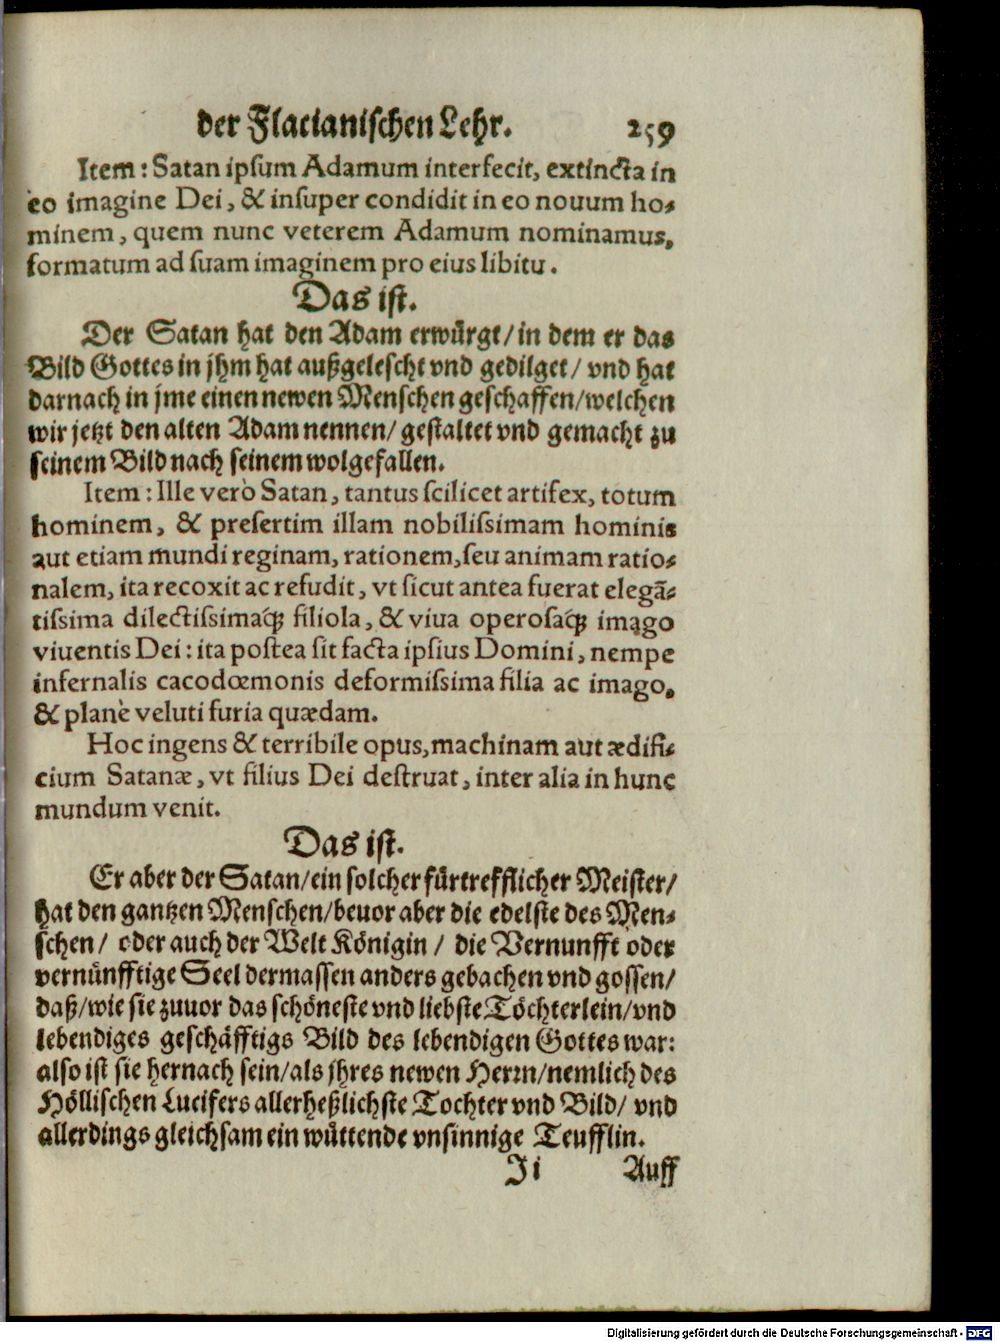 der Flacianischen Lehr. 259
Item: Satan ipsum Adamum interfecit, extincta in
eo imagine Dei, & insuper condidit in eo nouum ho-
minem, quem nunc veterem Adamum nominamus,
formatum ad suam imaginem pro eius libitu.
Das ist.
Der Satan hat den Adam erwürgt/ in dem er das
Bild Gottes in jhm hat außgelescht vnd gedilget/ vnd hat
darnach in jme einen newen Menschen geschaffen/welchen
wir jetzt den alten Adam nennen/ gestaltet vnd gemacht zu
seinem Bild nach seinem wolgefallen.
Item: Ille verò Satan, tantus scilicet artifex, totum
hominem, & presertim illam nobilissimam hominis
aut etiam mundi reginam, rationem, seu animam ratio-
nalem, ita recoxit ac refudit, vt sicut antea fuerat elegã-
tissima dilectissimaq́; filiola, & viua operosaq́; imago
viuentis Dei: ita postea sit facta ipsius Domini, nempe
infernalis cacodœmonis deformissima filia ac imago,
& planè veluti furia quædam.
Hoc ingens & terribile opus, machinam aut ædifi-
cium Satanæ, vt filius Dei destruat, inter alia in hunc
mundum venit.
Das ist.
Er aber der Satan/ein solcher fürtrefflicher Meister/
hat den gantzen Menschen/beuor aber die edelste des Men-
schen/ oder auch der Welt Königin/ die Vernunfft oder
vernünfftige Seel dermassen anders gebachen vnd gossen/
daß/wie sie zuuor das schöneste vnd liebste Töchterlein/vnd
lebendiges geschäfftigs Bild des lebendigen Gottes war:
also ist sie hernach sein/als jhres newen Herrn/nemlich des
Höllischen Lucifers allerheßlichste Tochter vnd Bild/ vnd
allerdings gleichsam ein wüttende vnsinnige Teufflin.
Ji Auff
Digitalisierung gefördert durch die Deutsche Forschungsgemeinschaft - DFG